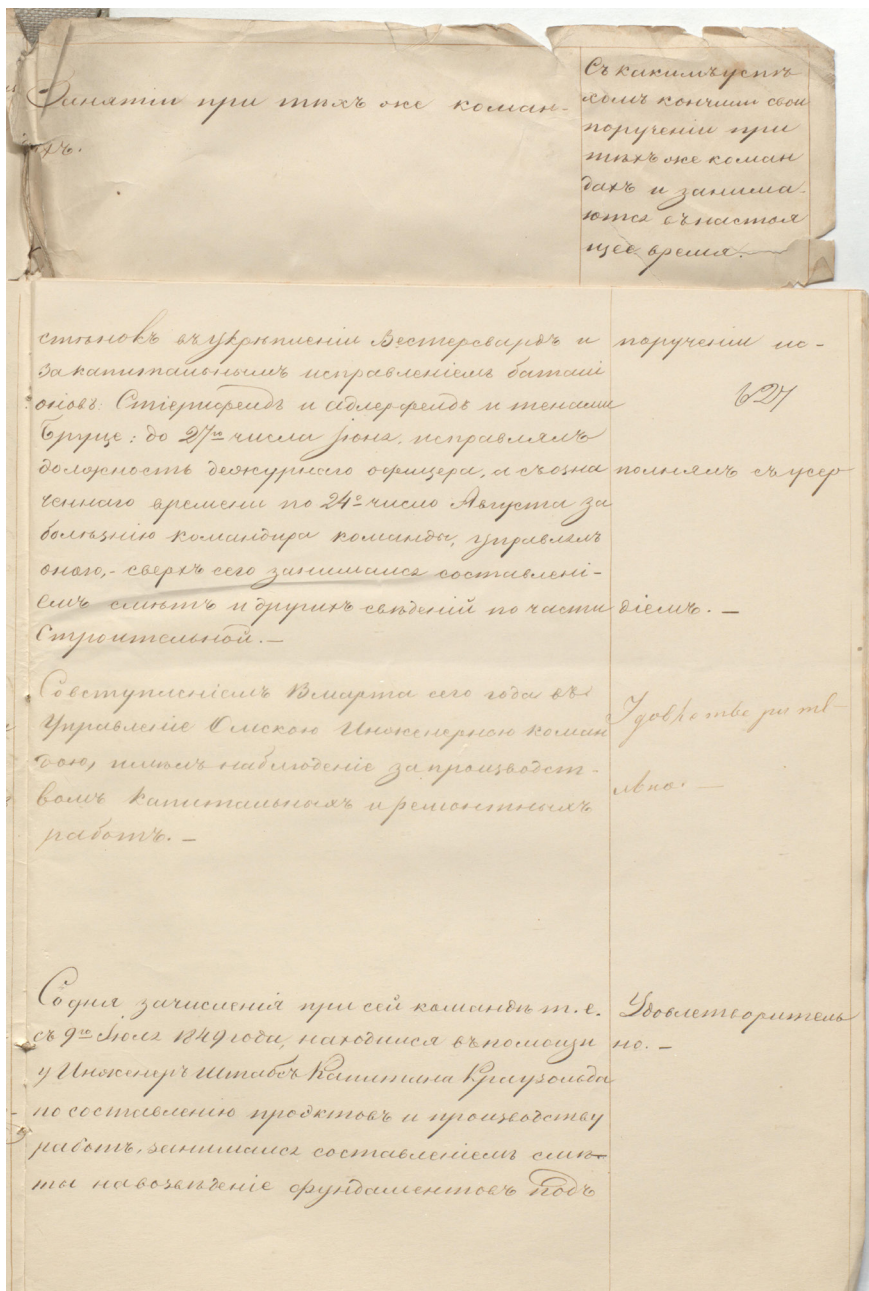 Занятіи при тѣхъ же коман-
хъ.
Съ какимъ успѣ
хомъ кончили свои
порученіи при
тѣхъ же коман
дахъ и занима-
ются въ настоя
щее время.—
стѣнокъ въ укрѣпленіи Вестерсвардъ и
за капитальнымъ исправленіемъ бастіи
оновъ: Стіернфельдъ и Адлерфельдъ и тенами
Бруце: до 27го числа Іюня. исправлялъ
должность дежурнаго офицера, а съ озна
ченнаго времени по 24е число Августа за
болѣзнію командира команды, управлялъ
оною,- сверхъ сего занимался составлені-
емъ смѣтъ и другихъ свѣденій по части
Строительной.—
порученіи ис-
627
полнялъ съ усер
діемъ.—
Со вступленіемъ 13 марта сего года въ
Управленіе Омскою Инженерною коман
дою, имѣлъ наблюденіе за производст-
вомъ капитальныхъ и ремонтныхъ
работъ.—
Удовлетворите-
льно.—
Со дня зачисленія при сей командѣ т. е.
съ 9го Іюля 1849 года, находился въ помощи
у Инженеръ Штабсъ Капитана Краузольда
по составленію проэктовъ и производству
работъ, занимался составленіемъ смѣ-
ты на возведеніе фундаментовъ подъ
Удовлетворитель
но.—